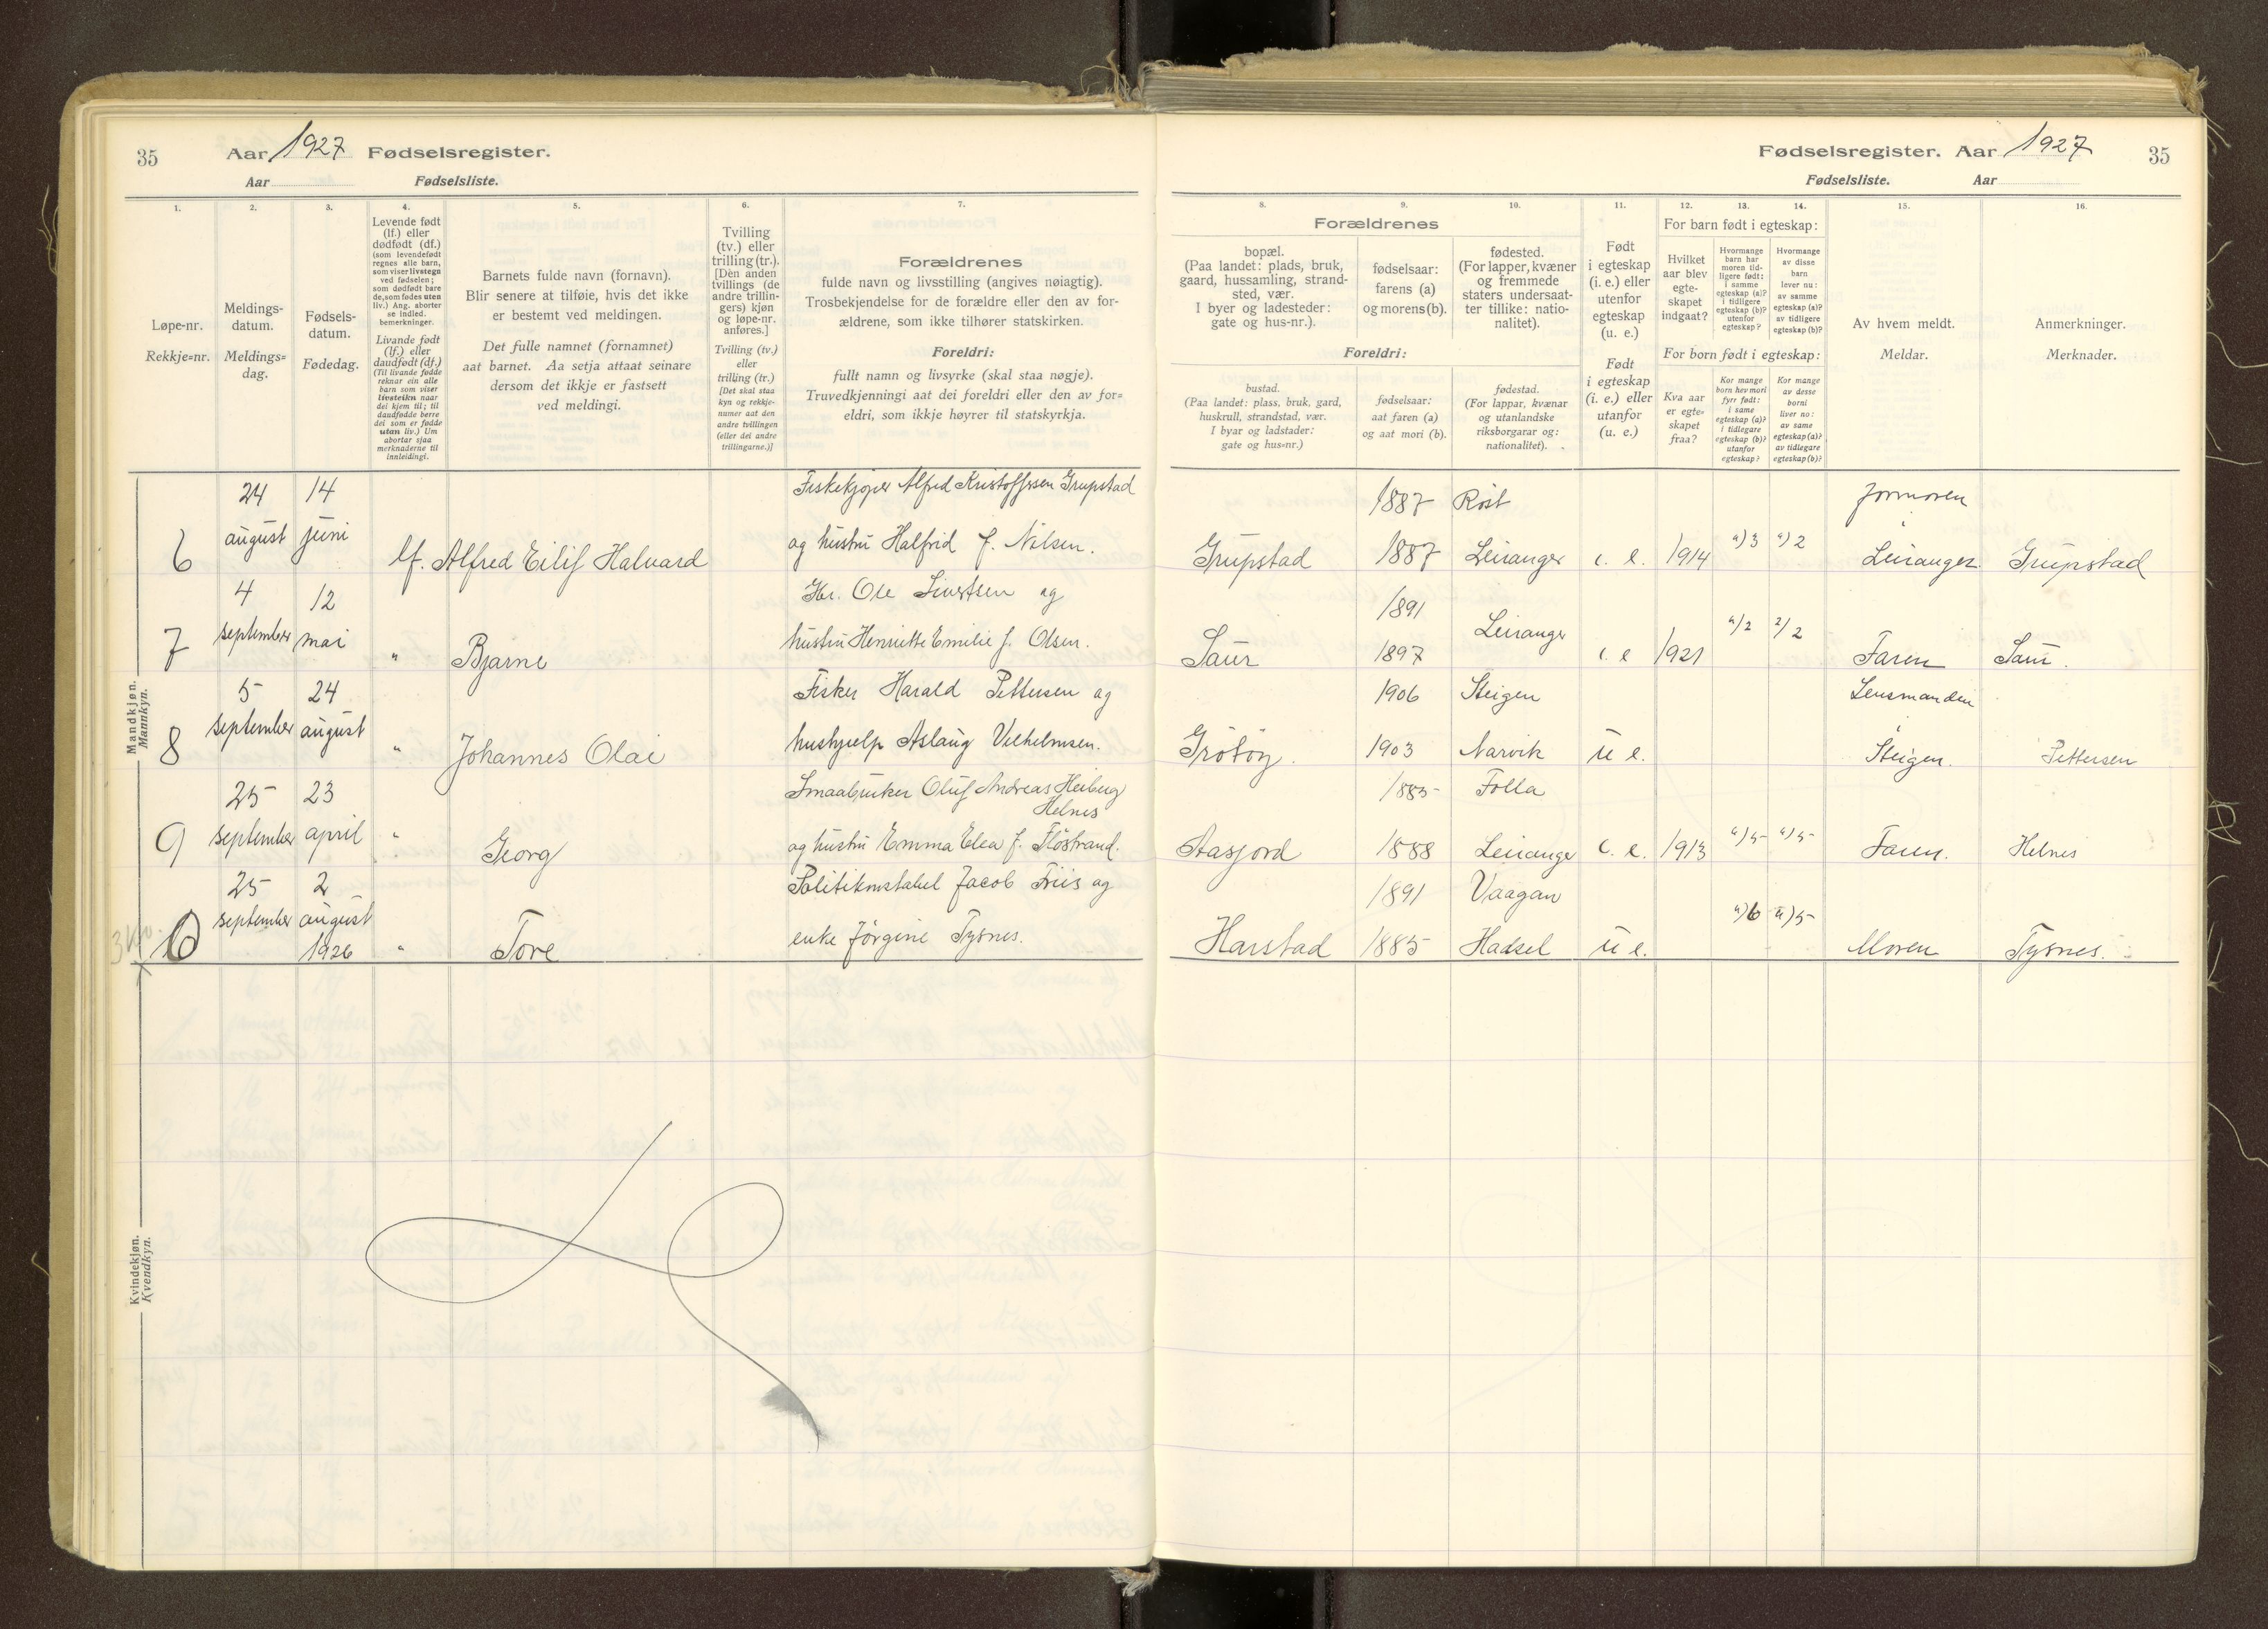 35
Aar 1927 Fødselsregister.
Aar Fødselsliste.
1.
2.
3.
4.
5.
6.
7.
Løpe-nr.
Rekkje=nr.
Meldings-
datum.
Meldings=
dag.
Fødsels-
datum.
Fødedag.
Levende født
(lf.) eller
dødfødt (df.)
(som levendefødt
regnes alle barn,
som viser livstegn
ved fødselen;
som dødfødt bare
de, som fødes uten
liv.) Ang. aborter
se indled.
bemerkninger.
Livande født
(lf.) eller
daudfødt (df.)
(Til livande fødde
reknar ein alle
barn som viser
livsteikn naar
dei kjem til; til
daudfødde berre
dei som er fødde
utan liv.) Um
abortar sjaa
merknaderne til
innleidingi.
Barnets fulde navn (fornavn).
Blir senere at tilføie, hvis det ikke
er bestemt ved meldingen.
Det fulle namnet (fornamnet)
aat barnet. Aa setja attaat seinare
dersom det ikkje er fastsett
ved meldingi.
Tvilling
(tv.) eller
trilling (tr.).
[Den anden
tvillings (de
andre trillin-
gers) kjøn
og løpe-nr.
anføres.]
Tvilling (tv.)
eller
trilling (tr.)
[Det skal staa
kyn og rekkje-
numer aat den
andre tvillingen
(eller dei andre
trillingarne.)]
Forældrenes
fulde navn og livsstilling (angives nøiagtig).
Trosbekjendelse for de forældre eller den av for-
ældrene, som ikke tilhører statskirken.
Foreldri:
fullt namn og livsyrke (skal staa nøgje).
Truvedkjenningi aat dei foreldri eller den av for=
eldri, som ikkje høyrer til statskyrkja.
Mandkjøn.
Mannkyn.
6
24
august
14
juni
lf.
Alfred Eilif Halvard
Fiskekjøper Alfred Kristoffersen Grupstad
og hustru Halfrid f. Nilsen.
7
4
september
12
mai
"
Bjarne
Gbr. Ole Sivertsen og
hustru Henriette Emilie f. Olsen.
8
5
september
24
august
"
Johannes Olai
Fisker Harald Pettersen og
hushjelp Aslaug Vilhelmsen.
9
25
september
23
april
"
Georg
Smaabruker Oluf Andreas Heiberg
Helnes
og hustru Emma Elea f. Flöstrand.
10
25
september
2
august
1926
"
Tore
Politikonstabel Jacob Friis og
enke Jørgine Tysnes.
Kvindekjøn.
Kvendkyn.
Fødselsregister. Aar 1927
35
Fødselsliste. Aar
8.
9.
10.
11.
12.
13.
14.
15.
16.
Forældrenes
bopæl.
(Paa landet: plads, bruk,
gaard, hussamling, strand-
sted, vær.
I byer og ladesteder:
gate og hus-nr.).
fødselsaar:
farens (a)
og morens (b).
fødested.
(For lapper, kvæner
og fremmede
staters undersaat-
ter tillike: natio-
nalitet).
Foreldri:
bustad.
(Paa landet: plass, bruk, gard,
huskrull, strandstad, vær.
I byar og ladstader:
gate og hus=nr.)
fødselsaar:
aat faren (a)
og aat mori (b).
fødestad.
(For lappar, kvænar
og utanlandske
riksborgarar og:
nationalitet).
Født
i egteskap
(i. e.) eller
utenfor
egteskap
(u. e.)
Født
i egteskap
(i. e.) eller
utanfor
(u. e.)
For barn født i egteskap:
Hvilket
aar blev
egte-
skapet
indgaat?
Hvormange
barn har
moren tid-
ligere født:
i samme
egteskap (a)?
i tidligere
egteskap (b)?
utenfor
egteskap?
Hvormange
av disse
barn
lever nu:
av samme
egteskap (a)?
av tidligere
egteskap (b)?
For born født i egteskap:
Kva aar
er egte=
skapet
fraa?
Kor mange
born hev mori
fyrr født:
i same
egteskap (a)?
i tidlegare
egteskap (b)?
utanfor
egteskap?
Kor mange
av desse
borni
liver no:
av same
egteskap (a)?
av tidlegare
egteskap (b)?
Av hvem meldt.
Meldar.
Anmerkninger.
Merknader.
Grupstad
1887
1887
Røst
Leiranger
i. e.
1914
a) 3
a) 2
Jormoren
i
Leiranger
Grupstad
Saur
1891
1897
Leiranger
i. e
1921
a/2
Faren
Saur.
Grötöy.
1906
1903
Steigen
Narvik
u e.
Lensmanden
i
Steigen.
Pettersen
Aasjord
1885
1888
Folla
Leiranger
i. e.
1913
a) 5
a) 5
Faren.
Helnes
Harstad
1891
1885
Vaagan
Hadsel
u e.
a) 6
a) 5
Moren
Tysnes.